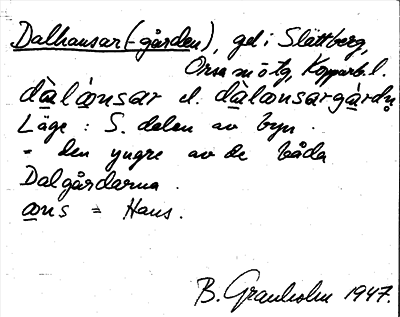 Dalhansar(-gården), gd i Slättberg,
Orsa sn ö tg, Kopparb. l.
dàlǻnsar el. dàlånsargàrdn̥
Läge : S. delen av byn.
= den yngre av de båda
Dalgårdarna.
åns = Hans.
B. Granholm 1947.